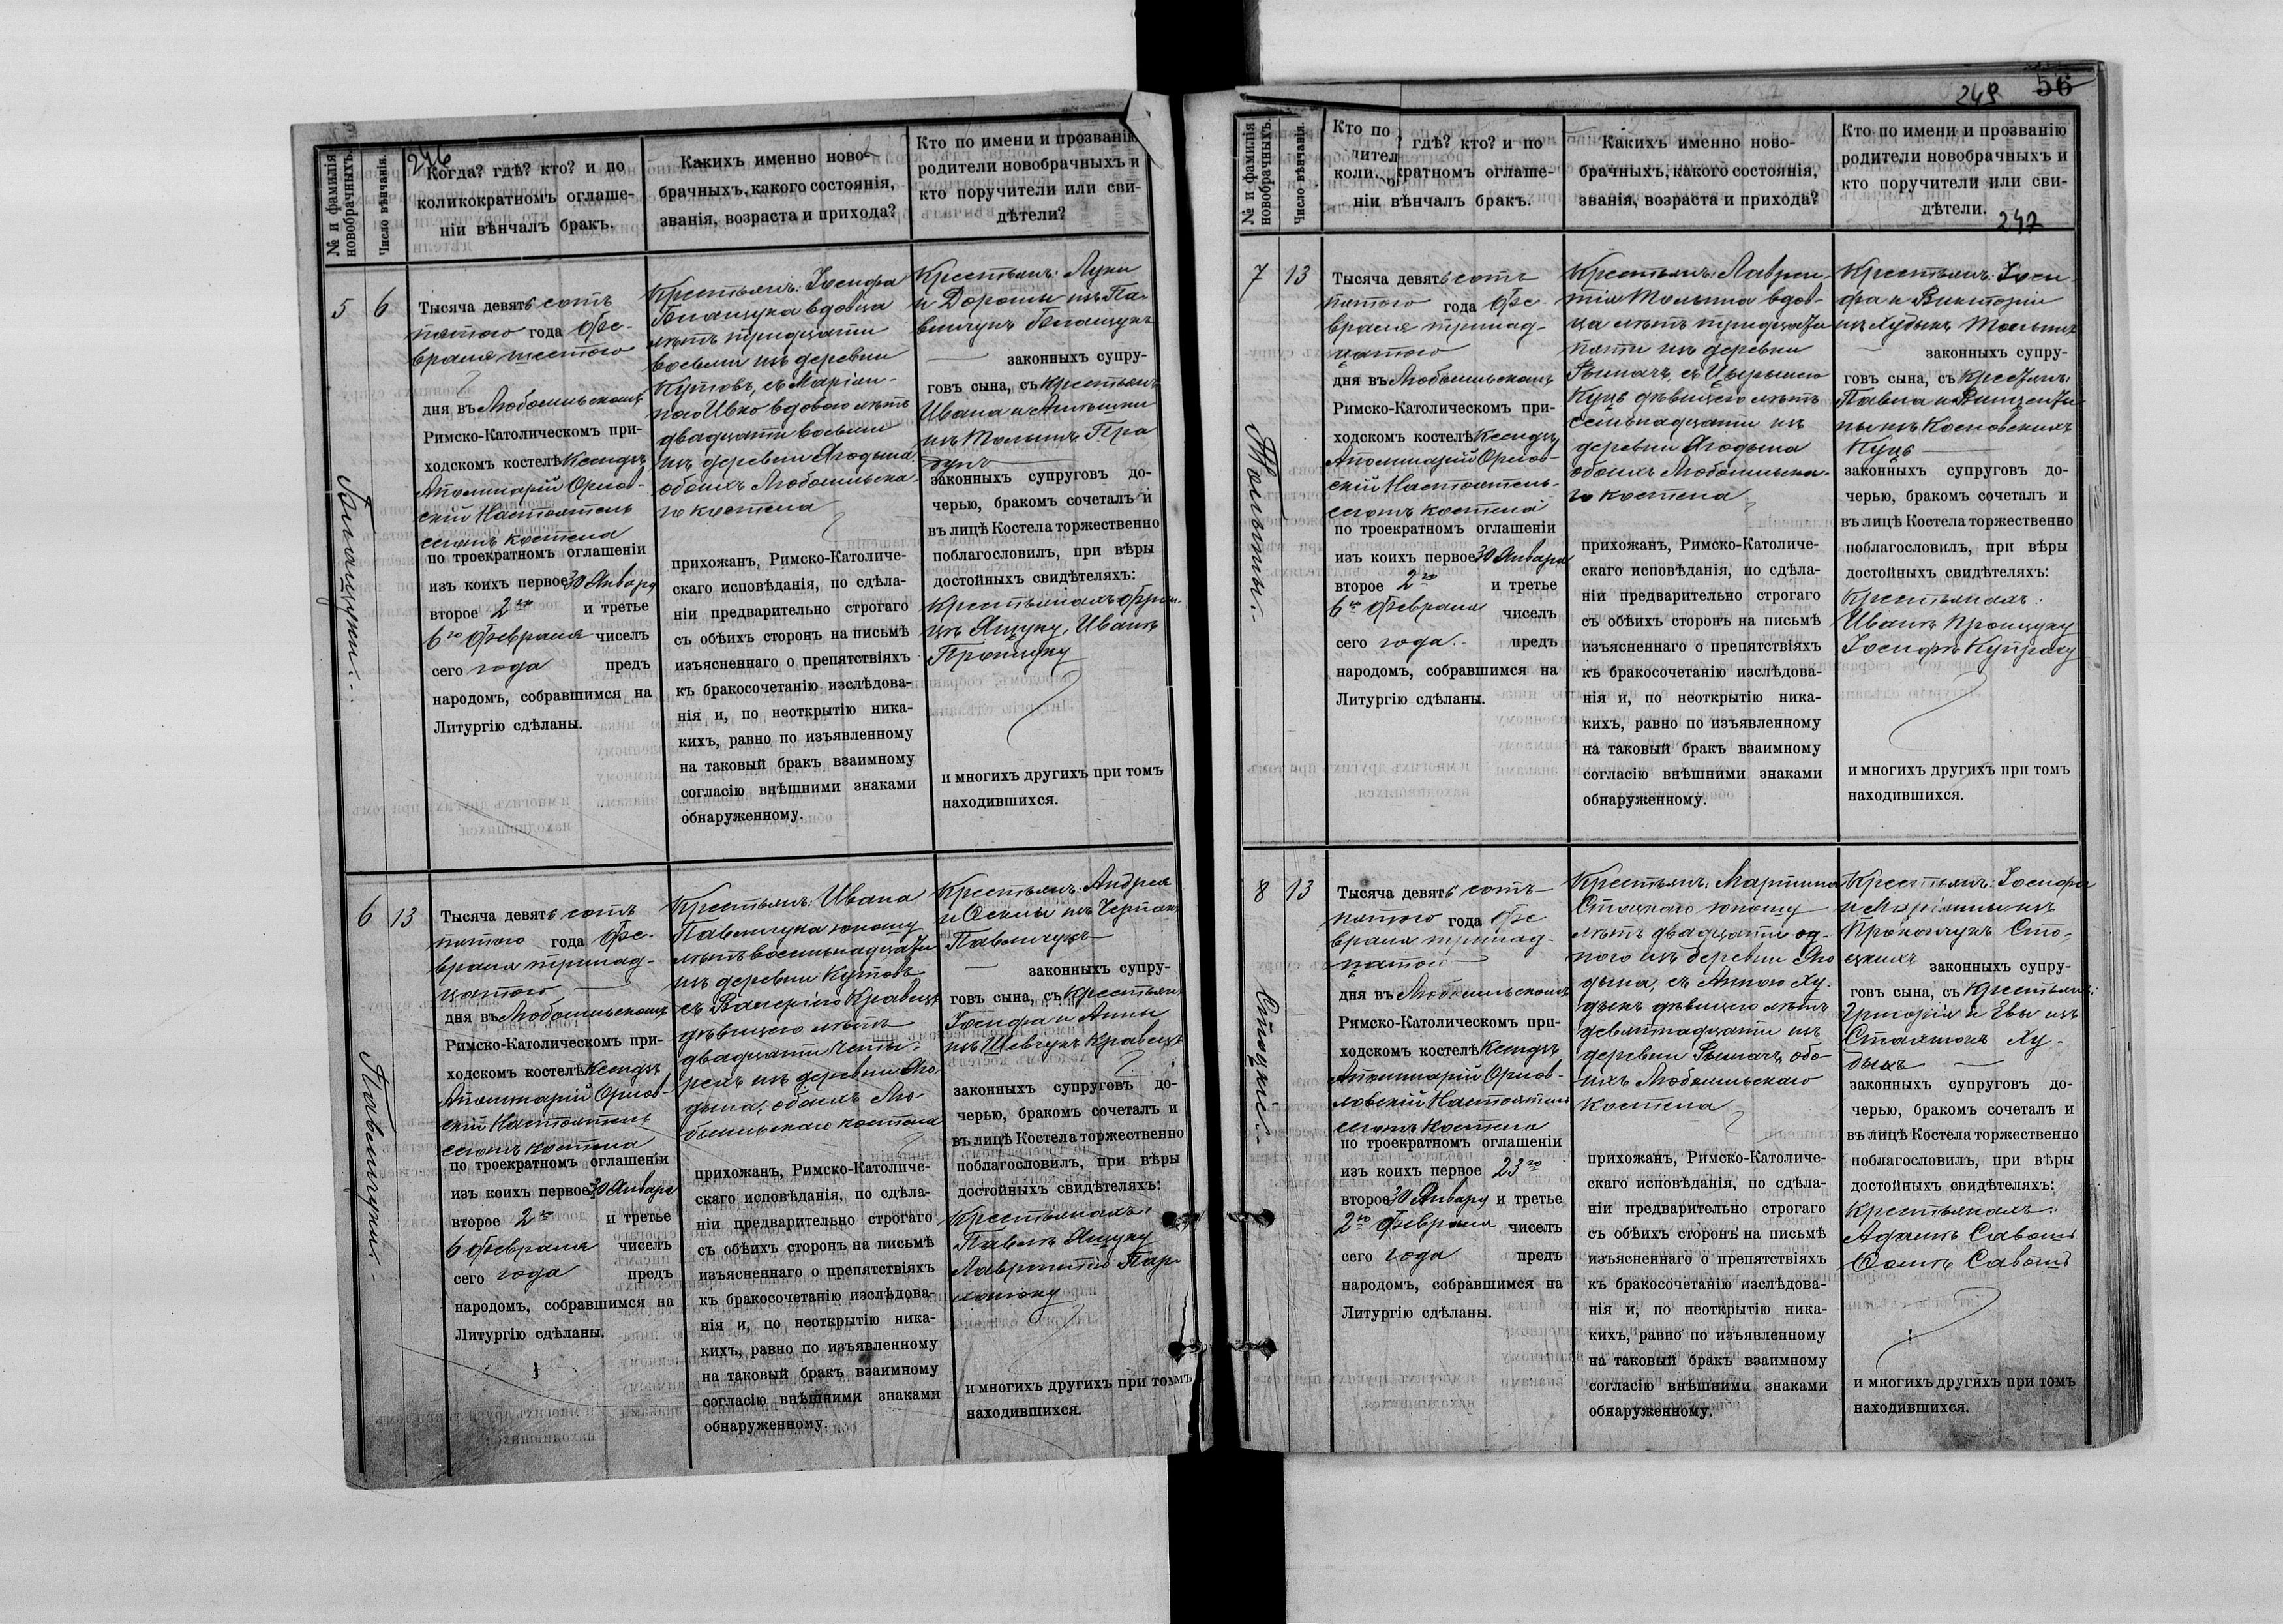 246
№ и фамилія
новобрачныхъ.
Число вѣнчанія.
Когда? гдѣ? кто? и по
коликократномъ оглаше-
ніи вѣнчалъ бракъ.
Какихъ именно ново-
брачныхъ, какого состоянія,
званія, возраста и прихода?
Кто по имени и прозванію
родители новобрачныхъ и
кто поручители или сви-
дѣтели?
5
6
Тысяча девятьсотъ
пятого года Фе-
враля шестого
дня въ Любомльскомъ
Римско-Католическомъ при-
ходскомъ костелѣ Ксендзъ
Аполинарій Орлов-
скій Настоятель
сего костела
по троекратномъ оглашеніи
изъ коихъ первое 30 Января
второе 2го и третье
6го Февраля чиселъ
сего года предъ
народомъ, собравшимся на
Литургію сдѣланы.
Крестьянъ: Іосифа
вдовца
лѣтъ тридцати
восьми изъ деревни
Кутовъ, съ Маріан-
ною Ивко вдовою лѣтъ
двадцати восьми
изъ деревни Ягодына,
обоихъ Любомльска-
го костела
прихожан, Римско-Католиче-
скаго исповѣданія, по сдѣла-
ніи предварительно строгаго
съ обѣихъ сторонъ на письмѣ
изъясненнаго о препятствіяхъ
къ бракосочетанію изслѣдова-
нія и, по неоткрытію ника-
кихъ, равно по изъявленному
на таковый бракъ взаимному
согласію внѣшними знаками
обнаруженному.
Крестьянъ: Луки
и Дороты изъ Па-
законныхъ супру-
говъ сына, съ Крестьянъ
Ивана и
изъ
законныхъ супруговъ до-
черью, бракомъ сочеталъ и
въ лицѣ Костела торжественно
поблагословилъ, при вѣры
достойныхъ свидѣтеляхъ:
Крестьянахъ: Фран-
цѣ Ящуку, Иванѣ
и многихъ другихъ при томъ
находившихся.
6
13
Павельчуки.
Тысяча девятьсотъ
пятого года Фе-
враля тринад-
цатого
дня въ Любомльскомъ
Римско-Католическомъ при-
ходскомъ костелѣ Ксендзъ
Аполинарій Орлов-
скій Настоятель
сего костела
по троекратномъ оглашеніи
изъ коихъ первое 30 Января
второе 2го и третье
6 Февраля чиселъ
сего года предъ
народомъ, собравшимся на
Литургію сдѣланы.
Крестьянъ: Ивана
Павельчука юношу
лѣтъ восемьнадцати
изъ деревни Кутовъ
съ Валеріею Кравецъ
дѣвицею лѣтъ
двадцати четы-
рехъ изъ деревни Яго-
дына, обоихъ Лю-
бомльскаго костела
прихожан, Римско-Католиче-
скаго исповѣданія, по сдѣла-
ніи предварительно строгаго
съ обѣихъ сторонъ на письмѣ
изъясненнаго о препятствіяхъ
къ бракосочетанію изслѣдова-
нія и, по неоткрытію ника-
кихъ, равно по изъявленному
на таковый бракъ взаимному
согласію внѣшними знаками
обнаруженному.
Крестьянъ: Андрея
и
Павельчукъ
законныхъ супру-
говъ сына, съ Крестьянъ
Іосифа и Анны
изъ Шевчукъ Кравецъ
законныхъ супруговъ до-
черью, бракомъ сочеталъ и
въ лицѣ Костела торжественно
поблагословилъ, при вѣры
достойныхъ свидѣтеляхъ:
Крестьянахъ:
Павлѣ Ящуку
и многихъ другихъ при томъ
находившихся.
249
56
№ и фамилія
новобрачныхъ.
Число вѣнчанія.
Кто по
гдѣ? кто? и по
кратномъ оглаше-
ніи вѣнчалъ бракъ.
Какихъ именно ново-
брачныхъ, какого состоянія,
званія, возраста и прихода?
Кто по имени и прозванію
родители новобрачныхъ и
кто поручители или сви-
дѣтели.
247
7
13
Тысяча девятьсотъ
пятого года Фе-
враля тринад-
цатого
дня въ Любомльскомъ
Римско-Католическомъ при-
ходскомъ костелѣ Ксендзъ
Аполинарій Орлов-
скій Настоятель
сего костела
по троекратномъ оглашеніи
изъ коихъ первое 30 Января
второе 2го и третье
6го Февраля чиселъ
сего года предъ
народомъ, собравшимся на
Литургію сдѣланы.
Крестьянъ: Лаврен-
тія вдов-
ца лѣтъ тридцати
пяти изъ деревни
Рымачъ, съ
Куцъ дѣвицею лѣтъ
семьнадцати изъ
деревни Ягодына
обоихъ Любомльска-
го костела
прихожан, Римско-Католиче-
скаго исповѣданія, по сдѣла-
ніи предварительно строгаго
съ обѣихъ сторонъ на письмѣ
изъясненнаго о препятствіяхъ
къ бракосочетанію изслѣдова-
нія и, по неоткрытію ника-
кихъ, равно по изъявленному
на таковый бракъ взаимному
согласію внѣшними знаками
обнаруженному.
Крестьянъ: Іоси
фа и Викторіи
изъ Худыкъ
законныхъ супру-
говъ сына, съ Крестьянъ:
Павла и Винценти-
ны изъ Косновскихъ
Куцъ
законныхъ супруговъ до-
черью, бракомъ сочеталъ и
въ лицѣ Костела торжественно
поблагословилъ, при вѣры
достойныхъ свидѣтеляхъ:
Крестьянахъ:
Иванѣ
Іосифѣ
и многихъ другихъ при томъ
находившихся.
8
13
Стоцкіе.
Тысяча девятьсотъ
пятого года Фе
враля тринад-
цатого
дня въ Любомльскомъ
Римско-Католическомъ при-
ходскомъ костелѣ Ксендзъ
Аполинарій Орлов-
ловскій Настоятель
сего костела
по троекратномъ оглашеніи
изъ коихъ первое 23го
второе 30 Января и третье
2го Февраля чиселъ
сего года предъ
народомъ, собравшимся на
Литургію сдѣланы.
Крестьянъ: Мартина
Стоцкаго юношу
лѣтъ двадцати од-
ного изъ деревни Яго
дына, съ Анною Ху-
дыкъ дѣвицею лѣтъ
девятнадцати изъ
деревни Рымачъ, обо-
ихъ Любомльскаго
костела
прихожан, Римско-Католиче-
скаго исповѣданія, по сдѣла-
ніи предварительно строгаго
съ обѣихъ сторонъ на письмѣ
изъясненнаго о препятствіяхъ
къ бракосочетанію изслѣдова-
нія и, по неоткрытію ника-
кихъ, равно по изъявленному
на таковый бракъ взаимному
согласію внѣшними знаками
обнаруженному.
Крестьянъ: Іосифа
и Маріанны изъ
Прокопчукъ Сто-
цкихъ законныхъ супру-
говъ сына, съ Крестьянъ:
Григорія и Евы изъ
Ху-
дыкъ
законныхъ супруговъ до-
черью, бракомъ сочеталъ и
въ лицѣ Костела торжественно
поблагословилъ, при вѣры
достойныхъ свидѣтеляхъ:
Крестьянахъ:
Адамѣ
и многихъ другихъ при томъ
находившихся.